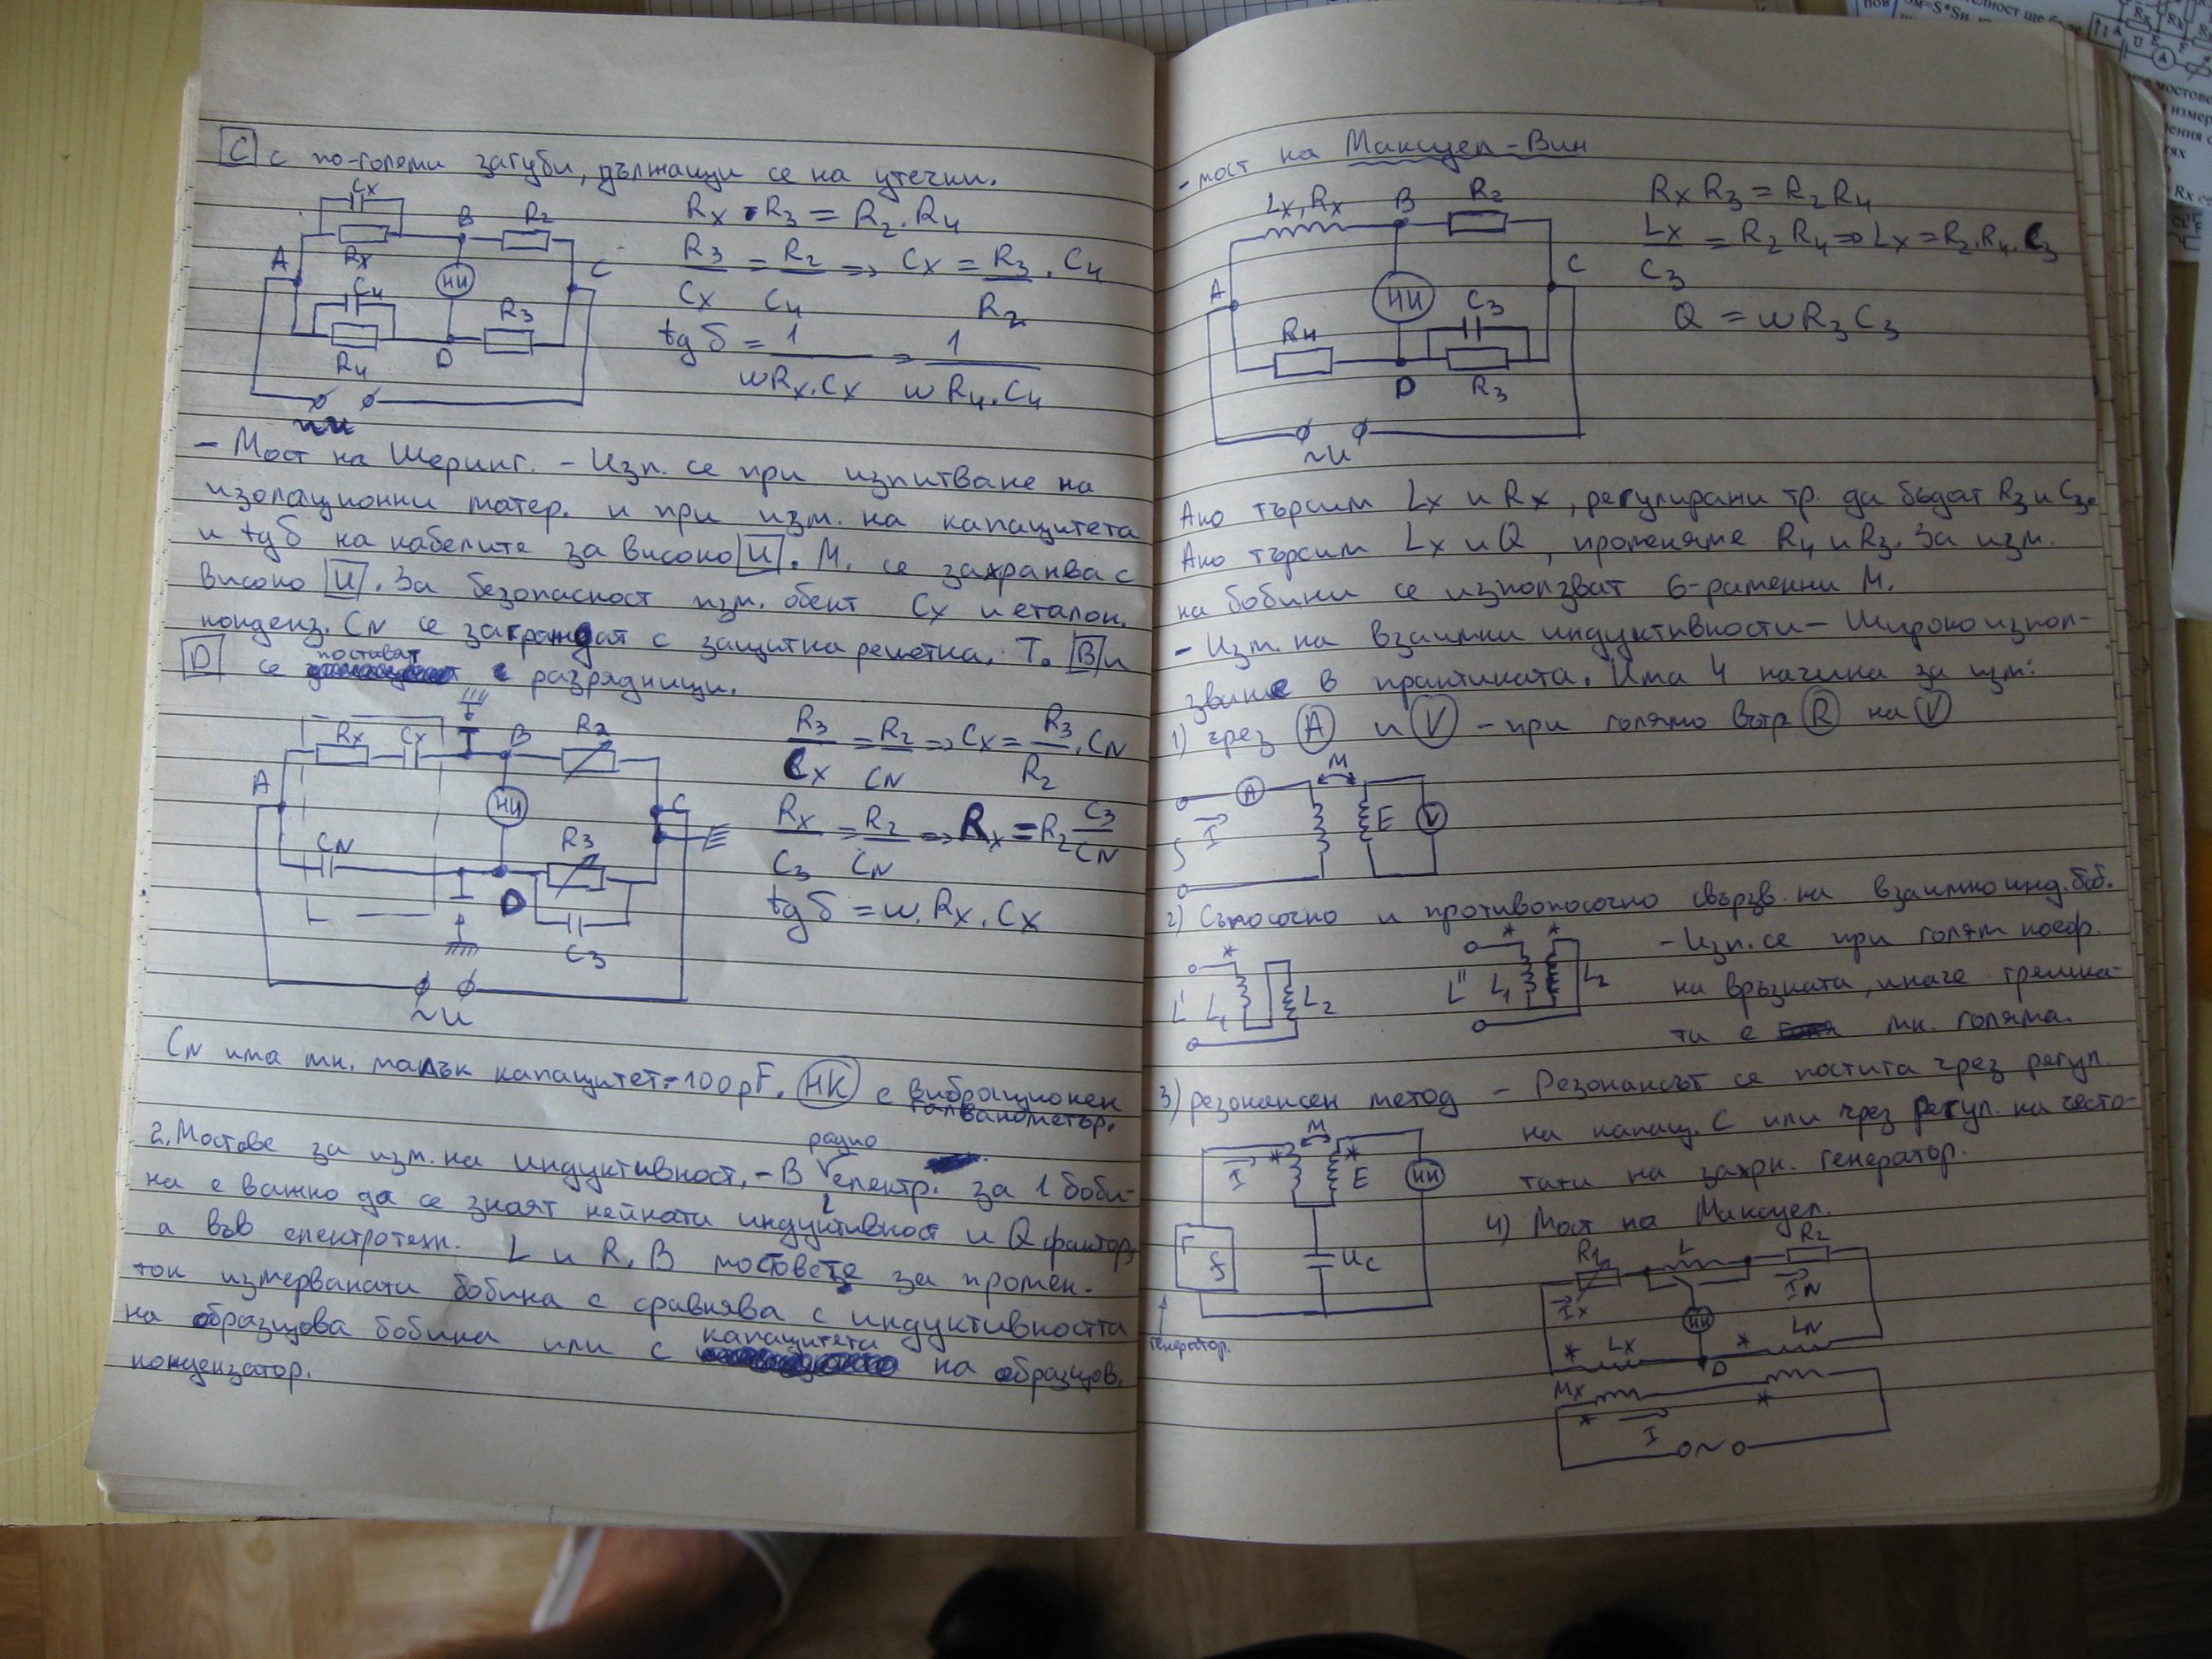 C с по-големи загуби, дължащи се на утечки.
Cx
Rx
A
B
R2
C
НИ
C4
R4
D
R3
~u
Rx . R3 = R2 . R4
R3/Cx = R2/C4 => Cx = R3/R2 . C4
tg δ = 1/ωRx.Cx = 1/ωR4.C4
- Мост на Шеринг. - Изп. се при изпитване на
изолационни матер. и при изм. на капацитета
и tgδ на кабелите за високо U. М. се захранва с
високо U. За безопасност изм. обект Cx и еталон.
конденз. CN се заграждат с защитна решетка. Т. B и
D се поставят разрядници.
Rx Cx
B
R2
A
НИ
C
CN
R3
D
C3
~u
R3/Cx = R2/CN => Cx = R3/R2 . CN
Rx/C3 = R2/CN => Rx = R2 C3/CN
tg δ = ω. Rx. Cx
CN има мн. малък капацитет - 100pF. НК е вибрационен
галванометър.
2. Мостове за изм. на индуктивност. - В радио електр. за 1 боби-
на е важно да се знаят нейната индуктивност и Q фактор,
а във електротехн. L и R. В мостовете за промен.
ток измерваната бобина с сравнява с индуктивността
на образцова бобина или с капацитета на образцов.
кондензатор.
- мост на Максуел - Вин
Lx, Rx
B
R2
A
C
НИ
C3
R4
D
R3
~u
Rx R3 = R2 R4
Lx/C3 = R2 R4 => Lx = R2. R4. C3
Q = ωR3 C3
Ако търсим Lx и Rx, регулирани тр. да бъдат R3 и C3.
Ако търсим Lx и Q, променяме R4 и R3. За изм.
на бобини се използват 6-раменни М.
- Изм. на взаимни индуктивности - Широко изпол-
звание в практиката. Има 4 начина за изм:
1) чрез A и V - при голямо вътр R на V
A
I
M
E
V
f
2) Съпосочно и противопосочно свързв. на взаимноинд. боб.
* L' L1 L2
* * L" L1 L2
- Изп. се при голям коеф.
на връзката, иначе грешка-
та е мн. голяма.
3) резонансен метод - Резонансът се постига чрез регул.
на капац. C или чрез регул. на често-
тата на захрн. генератор.
M
I * * E
НИ
Г
f
Uc
генератор.
4) Мост на Максуел.
R1 L R2
Ix IN
НИ
* Lx D * LN
Mx
* I *
~